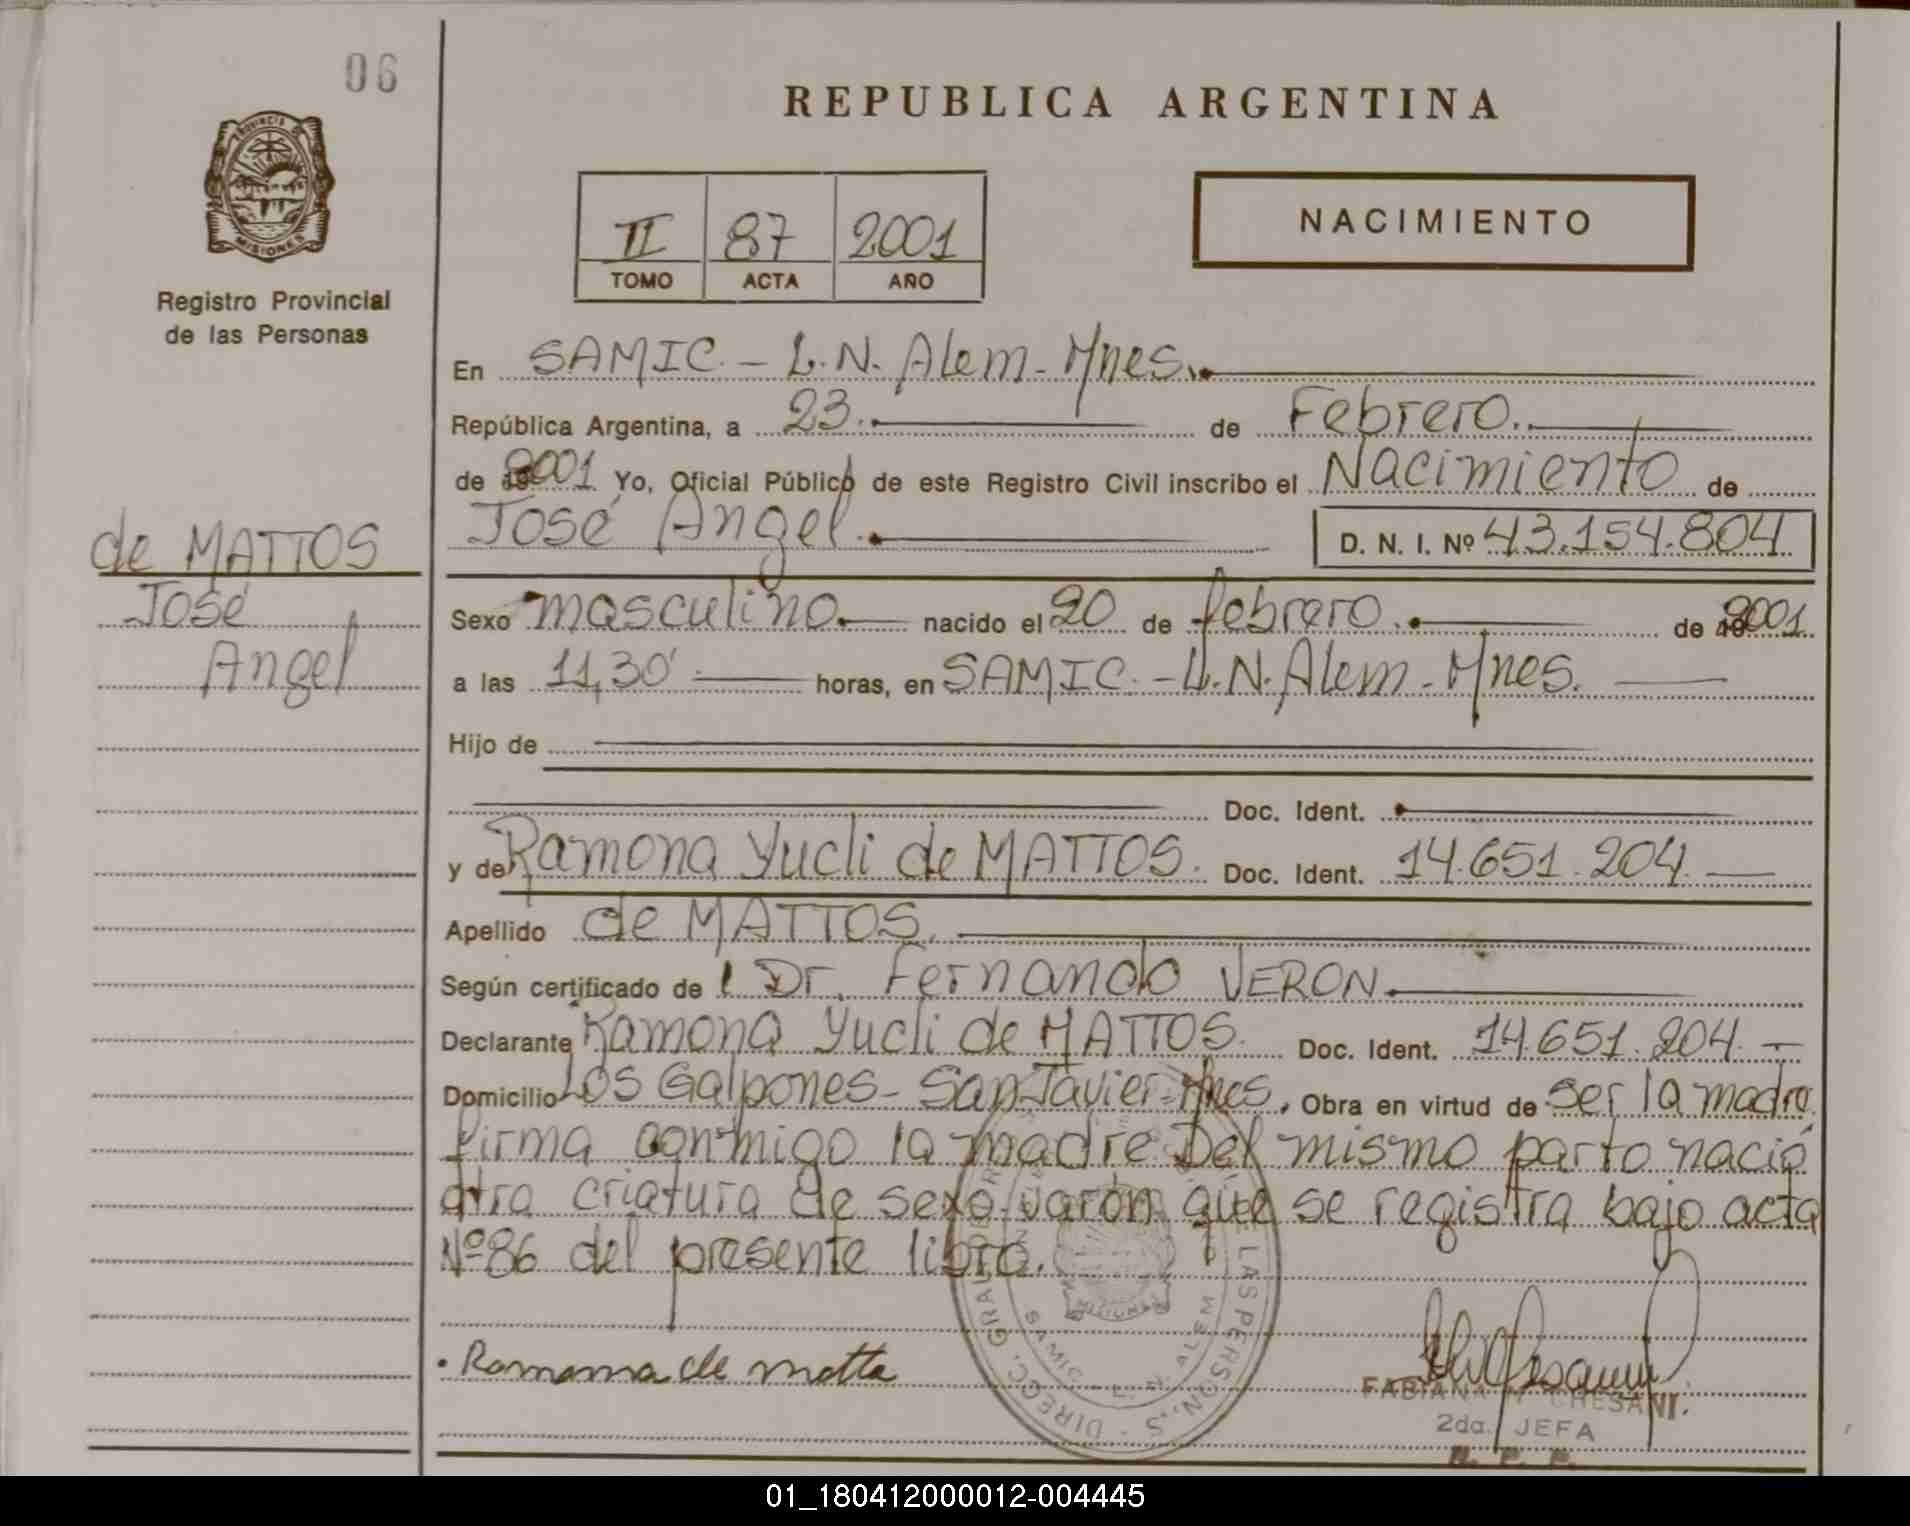 06
REPUBLICA ARGENTINA
PROVINCIA DE
MISIONES
Registro Provincial
de las Personas
II 87 2001
TOMO ACTA AÑO
NACIMIENTO
En SAMIC - L.N. Alem - Mnes.
República Argentina, a 23 de Febrero.
de 2001 Yo, Oficial Público de este Registro Civil inscribo el Nacimiento de
José Angel. D. N. I. Nº 43.154.804
de MATTOS
José
Angel
Sexo masculino. nacido el 20 de febrero. de 2001
a las 11,30' horas, en SAMIC. - L.N. Alem - Mnes.
Hijo de
Doc. Ident.
y de Ramona Yucli de MATTOS. Doc. Ident. 14.651.204
Apellido de MATTOS.
Según certificado de l Dr. Fernando VERON.
Declarante Ramona Yucli de MATTOS. Doc. Ident. 14.651.204.
Domicilio Los Galpones - San Javier - Mnes. Obra en virtud de ser la madre
firma conmigo la madre Del mismo parto nació
otra criatura de sexo varón que se registra bajo acta
Nº 86 del presente libro.
LAS PERSONAS
SAMIC - L. N. ALEM
Ramona de motta
FABIANA CHESANI.
2da. JEFA
R. P. P.
01_180412000012-004445